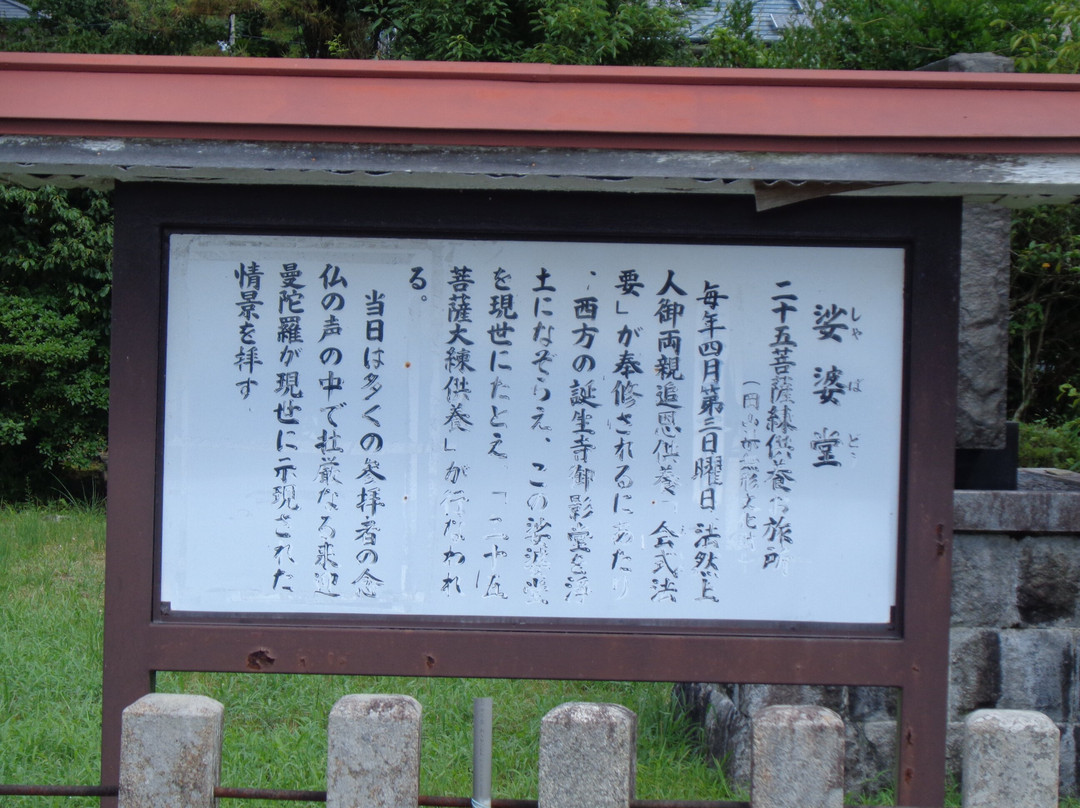 娑婆堂
しゃ ば どう
二十五菩薩練供養お旅所
毎年四月第三日曜日 法然上
人御両親追恩供養「会式法
要」が奉修されるにあたり
、西方の誕生寺御影堂を浄
土になぞらえ、この娑婆堂
を現世にたとえ 「二十五
菩薩大練供養」が行なわれ
る。
当日は多くの参拝者の念
仏の声の中で壮厳なる来迎
曼陀羅が現世に示現された
情景を拝す